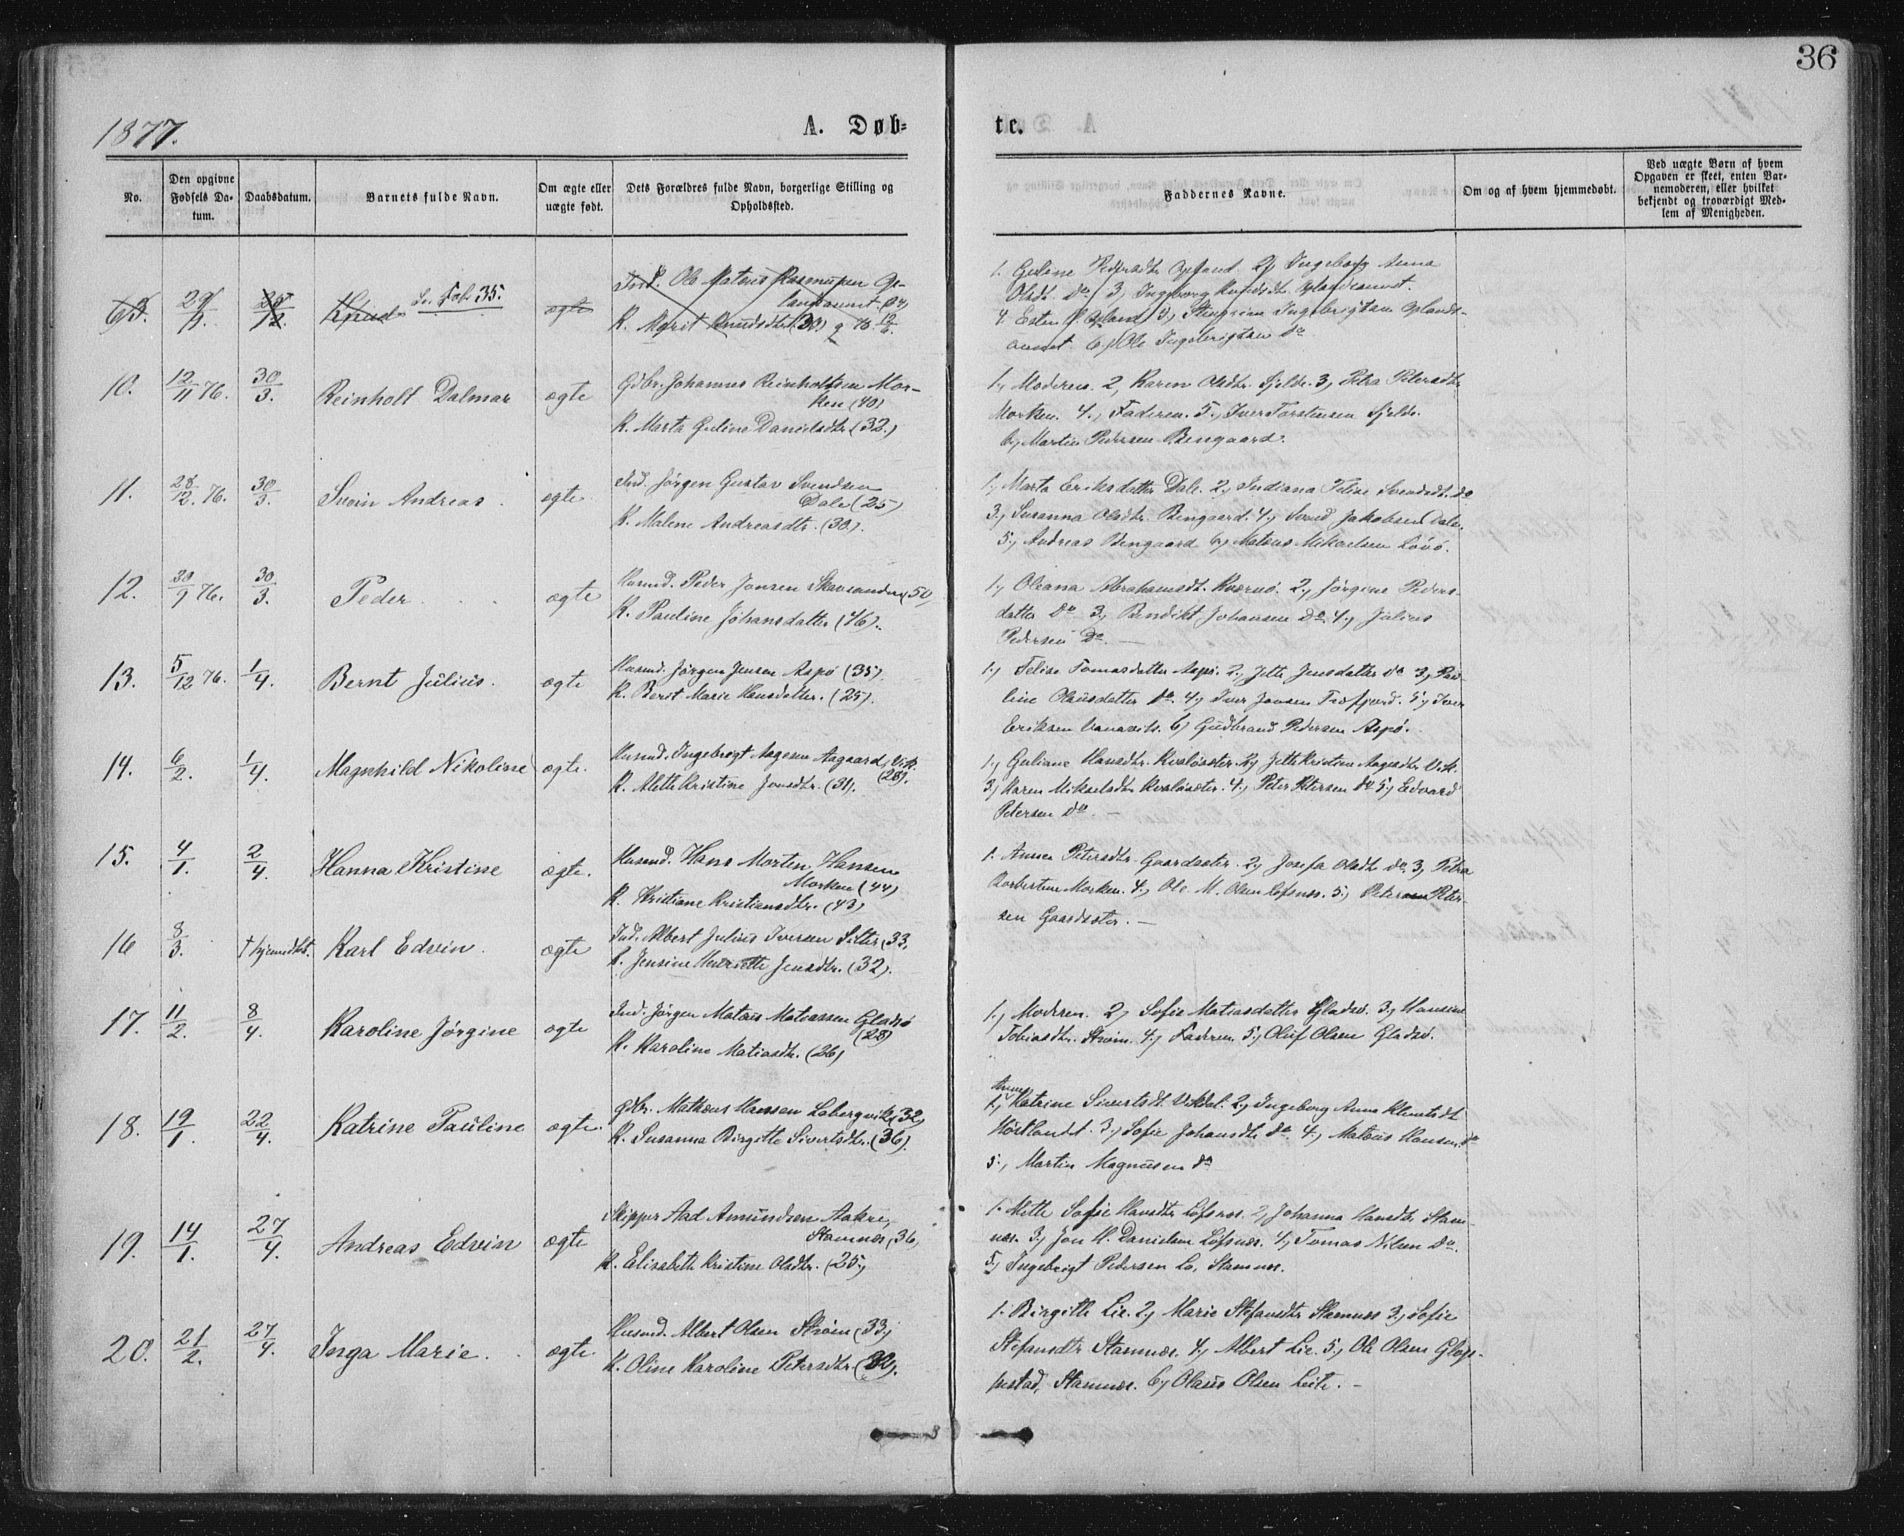 36
1877.
A. Døb=
te.
No.
Den opgivne Fødsels Datum.
Daabsdatum.
Barnets fulde Navn.
Om ægte eller uægte født.
Dets Forældres fulde Navn, borgerlige Stilling og Opholdssted.
Faddernes Navne.
Om og af hvem hjemmedøbt.
Ved uægte Børn af hvem Opgaven er skeet, enten Barnemoderen, eller hvilket bekjendt og troværdigt Medlem af Menigheden.
Knud Se Fol. 35. ægte
Ole Mateus Rasmussen
K. Marit Knudsdtr. (39)
1. Guline Pedersdtr. Opland 2, Ingeborg Anna
Olsdt. do 3, Ingeborg
4. Ester
6, Ole Ingebrigtsen do
10. 12/11 76. 30/3. Reinholt Dalmar ægte
Gdbr. Johannes Reinholtsen Mor-
ken (40)
K. Marta Guline Danielsdtr (32.)
1, Moderen. 2, Karen Olsdtr. Fjelde. 3, Petra Petersdtr
Morken. 4., Faderen. 5., Iver Torstensen Fjelde.
6, Martin Pedersen Bengaard.
11. 28/12 76. 30/3. Svein Andreas. ægte
Ind. Jørgen Gustav Svendsen
Dale (25)
K. Malene Andreasdtr. (30).
1, Marta Eriksdatter Dale. 2, Indiana Felise Svendsdt. do
3, Susanna Olsdtr. Bengaard. 4, Svend Jakobsen Dale.
5, Andreas Bengaard 6, Mateus Mikaelsen Løvø.
12. 30/9 76. 30/3. Peder ægte
Husmd. Peder Jonsen (50)
K. Pauline Johansdatter (46).
1, Oleana Abrahamsdt. Kværnø. 2, Jørgine Peders-
datter do 3, Bendikt Johansen Do. 4, Julius
Pedersen Do. —
13. 5/12 76. 1/4. Bernt Julius. ægte
Husmd. Jørgen Jensen Aspø (35)
K. Berit Marie Hansdatter. (25).
1, Felise Tomasdatter Aspø. 2, Jette Jensdatter do 3, Pau-
line Olausdatter do. 4, Iver Jonsen Træfjord. 5, Iver
Eriksen 6, Gudbrand Pedersen Aspø.
14. 6/2. 1/4. Magnhild Nikoline ægte.
Husmd. Ingebrigt Aagesen Aagaard, Vik.
(28).
K. Alette Kristine Jonsdtr. (31).
1, Guliane Hansdtr. Kvaløsæter. 2, Jette Kristine Aagesdtr Vik.
3, Karen Mikaelsdtr Kvaløsæter. 4, Peter Petersen do 5, Edvard
Petersen do. —
15. 4/1. 2/4. Hanna Kristine ægte.
Husmd. Hans Morten Hansen
Morken (44)
K. Kristiane Kristiansdtr. (43)
1. Anne Petersdtr. Gaardsæter. 2, Josefa Olsdtr do. 3, Petra
Morken. 4, Ole M. Olsen Løfsnes. 5, Petersen Peter-
sen Gaardsæter. —
16 8/3. † hjemdbt. Karl Edvin. ægte
Ind. Albert Julius Iversen Silter (33,
K. Jensine Henriette Jensdtr. (32).
17. 11/2. 8/4. Karoline Jørgine ægte
Ind. Jørgen Mateus Mateassen Gladsø
(28)
K. Karoline Matiasdtr. (26)
1, Moderen. 2, Sofie Matiasdatter Gladsø. 3, Hansine
Tobiasdtr. Strøm. 4, Faderen 5, Oluf Olsen Gladsø.
18. 19/1. 22/4. Katrine Pauline ægte.
Gdbr. Matheus Hansen Labergvik (32)
K. Susanna Birgitte Sivertsdtr. (36).
Anne
1, Katrine Sivertsdt. Vikdal. 2, Ingeborg Anna
3, Sofie Johansdtr do. 4, Mateus Hansen do
5., Martin Magnusen do
19. 14/1. 27/4. Andreas Edvin ægte
Skipper Aad Amundsen Aakre,
Stamnes (36,
K. Elisabeth Kristine Olsdtr. (25,
1. Mette Sofie Hansdtr Løfsnes. 2, Johanna Hansdtr. Stam-
nes. 3, Jon H. Danielsen Løfsnes. 4, Tomas Nilsen do.
5, Ingebrigt Pedersen Lo. Stamnes.
20. 21/2. 27/4. Inga Marie. ægte
Husmd. Albert Olsen Strøm (33,
K. Oline Karoline Petersdtr (32).
1. Birgitte Lie. 2, Marie Stefansdtr Stamnes 3, Sofie
Stefansdtr Stamnes. 4, Albert Lie. 5, Ole Olsen Glop-
pestad, Stamnes. 6, Olaus Olsen Leite. —
3